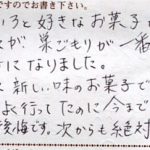 ですのでお書き下さい。
いろと好きなお菓子
スが巣ごもりが一番
きになりました。
に新しい味のお菓子で
よく行ってたのに今まで
後悔です。次からも絶対